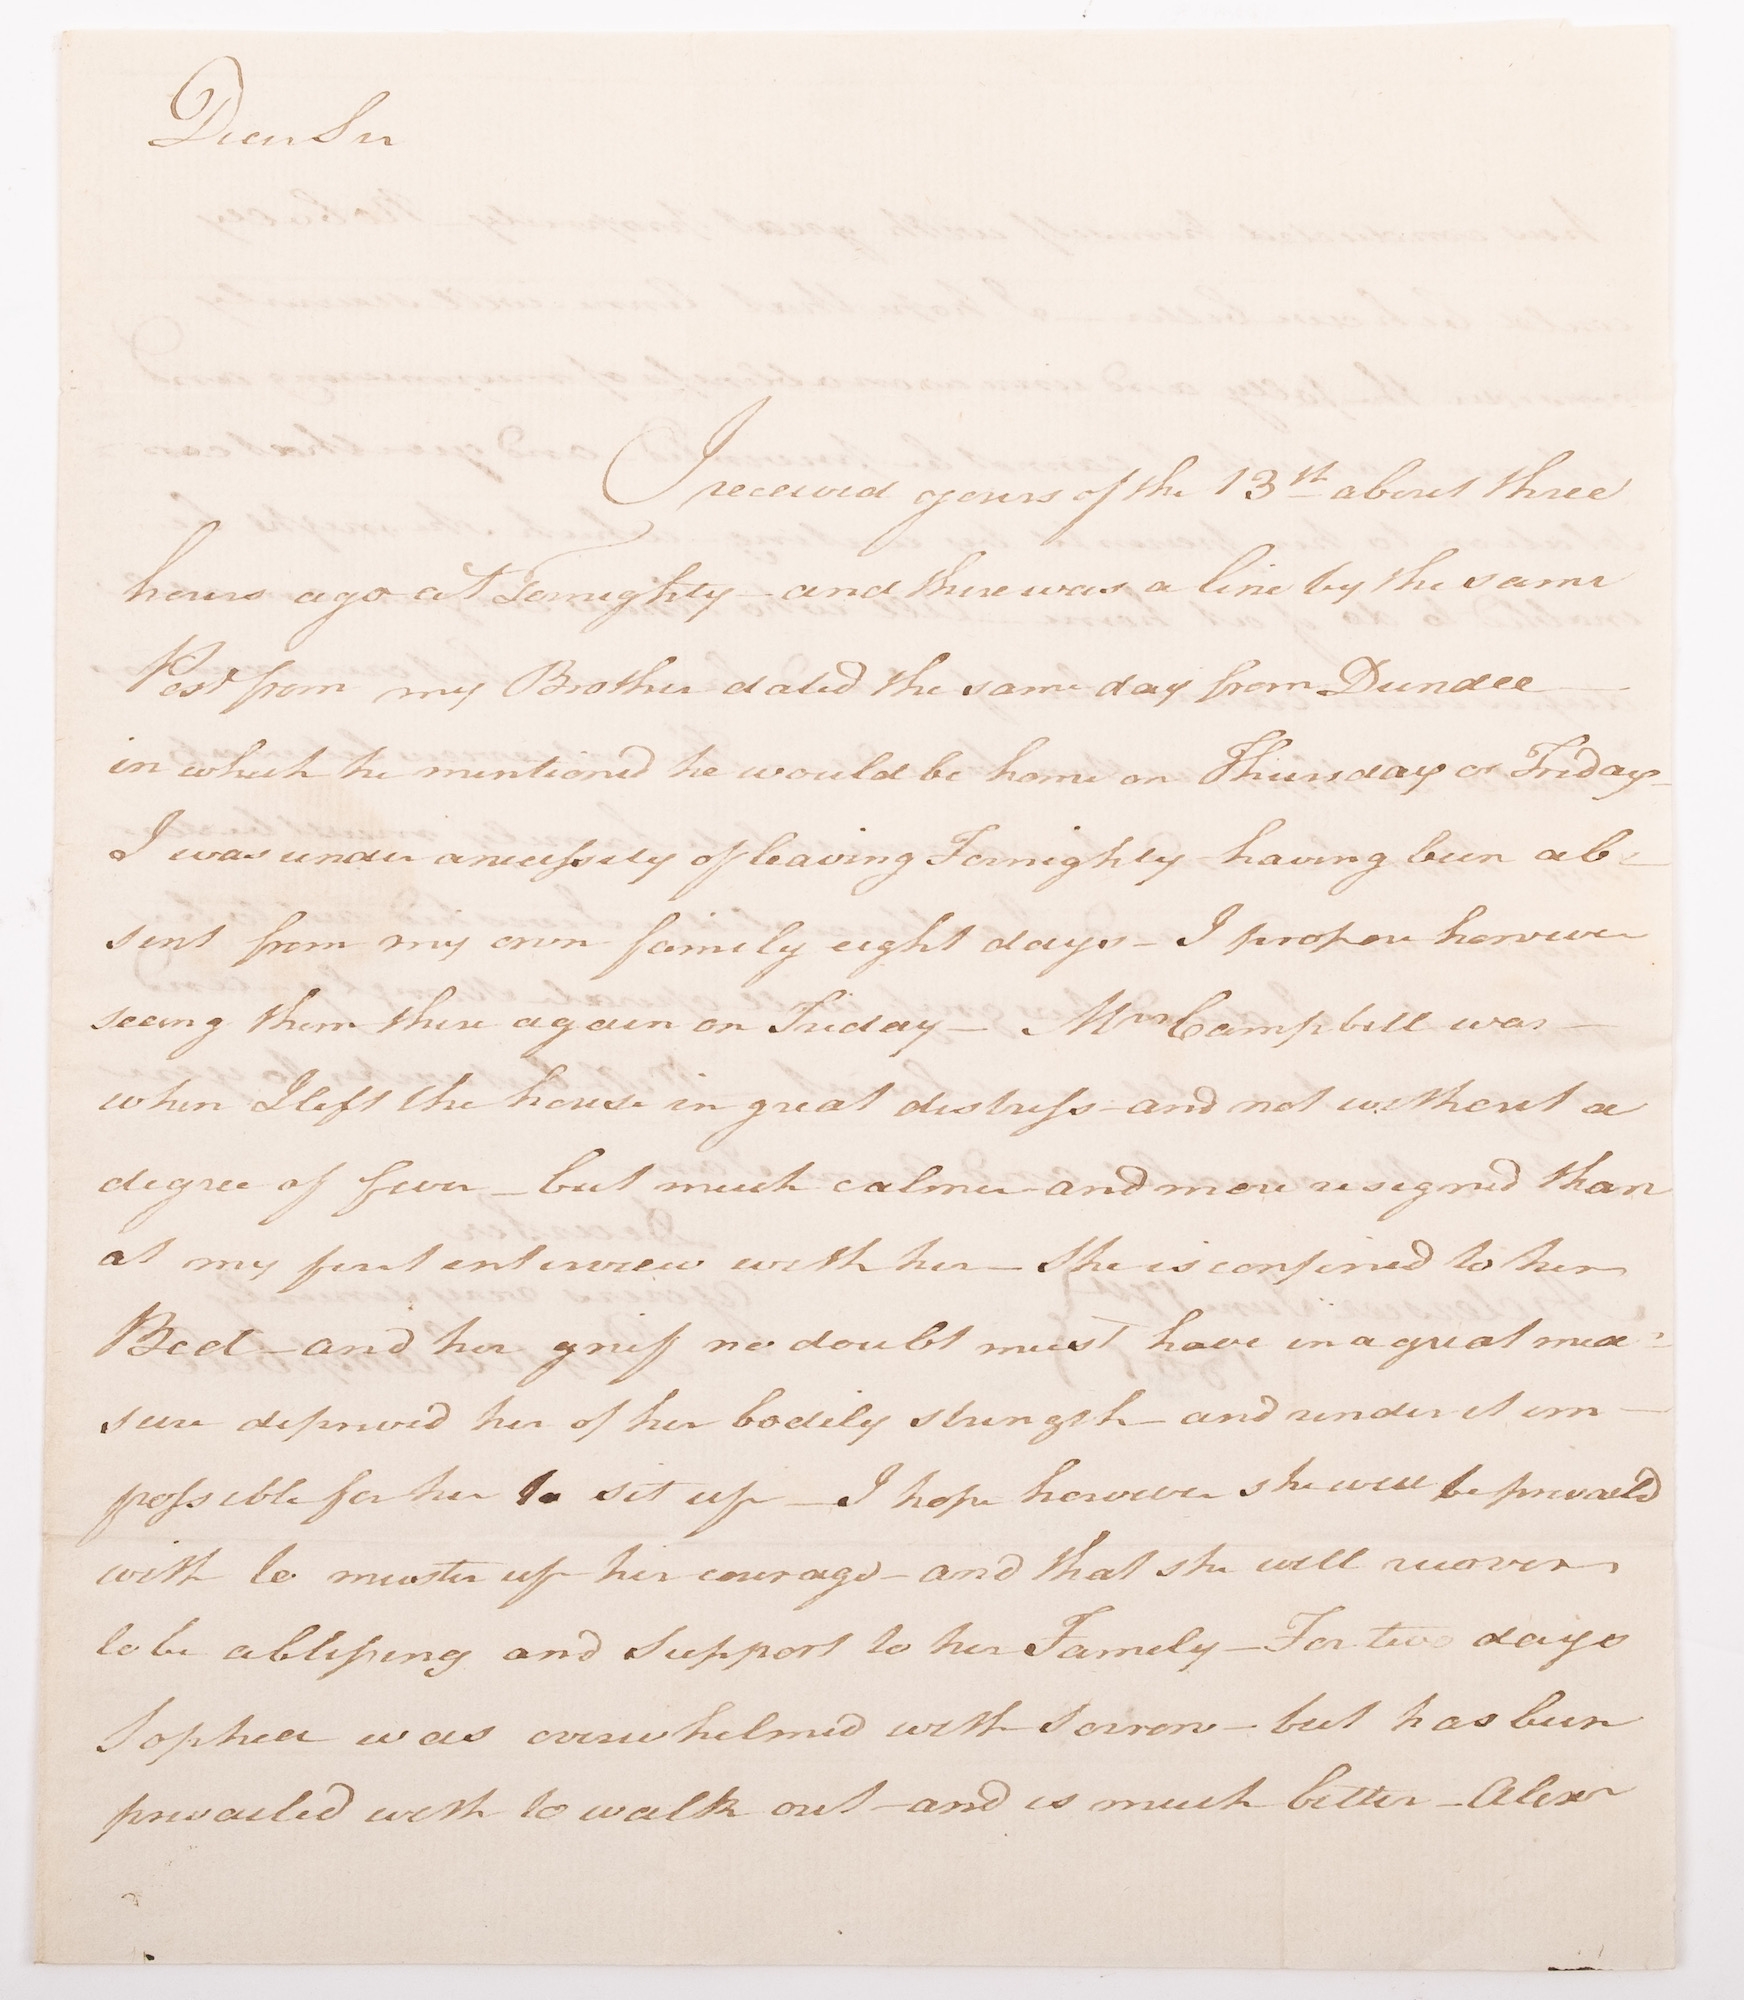 Dear Sir
I received yours of the 13th about three
hours ago at Fornighty – and there was a line by the same
Post from my Brother dated the same day from Dundee –
in which he mentioned he would be home on Thursday or Friday –
I was under a necessity of leaving Fornighty – having been ab-
sent from my own family eight days – I propose however
seeing them there again on Friday – Mrs Campbell was –
when I left the house in great distress – and not without a
degree of fever – but much calmer and more resigned than
at my first interview with her – She is confined to her
Bed – and her grief no doubt must have in a great mea-
sure deprived her of her bodily strength – and render it im-
possible for her to sit up – I hope however she will be prevaild
with to muster up her courage – and that she will recover
to be a blessing and Support to her Family – For two days
Sophia was overwhelmed with Sorrow – but has been
prevailed with to walk out – and is much better – Alexr